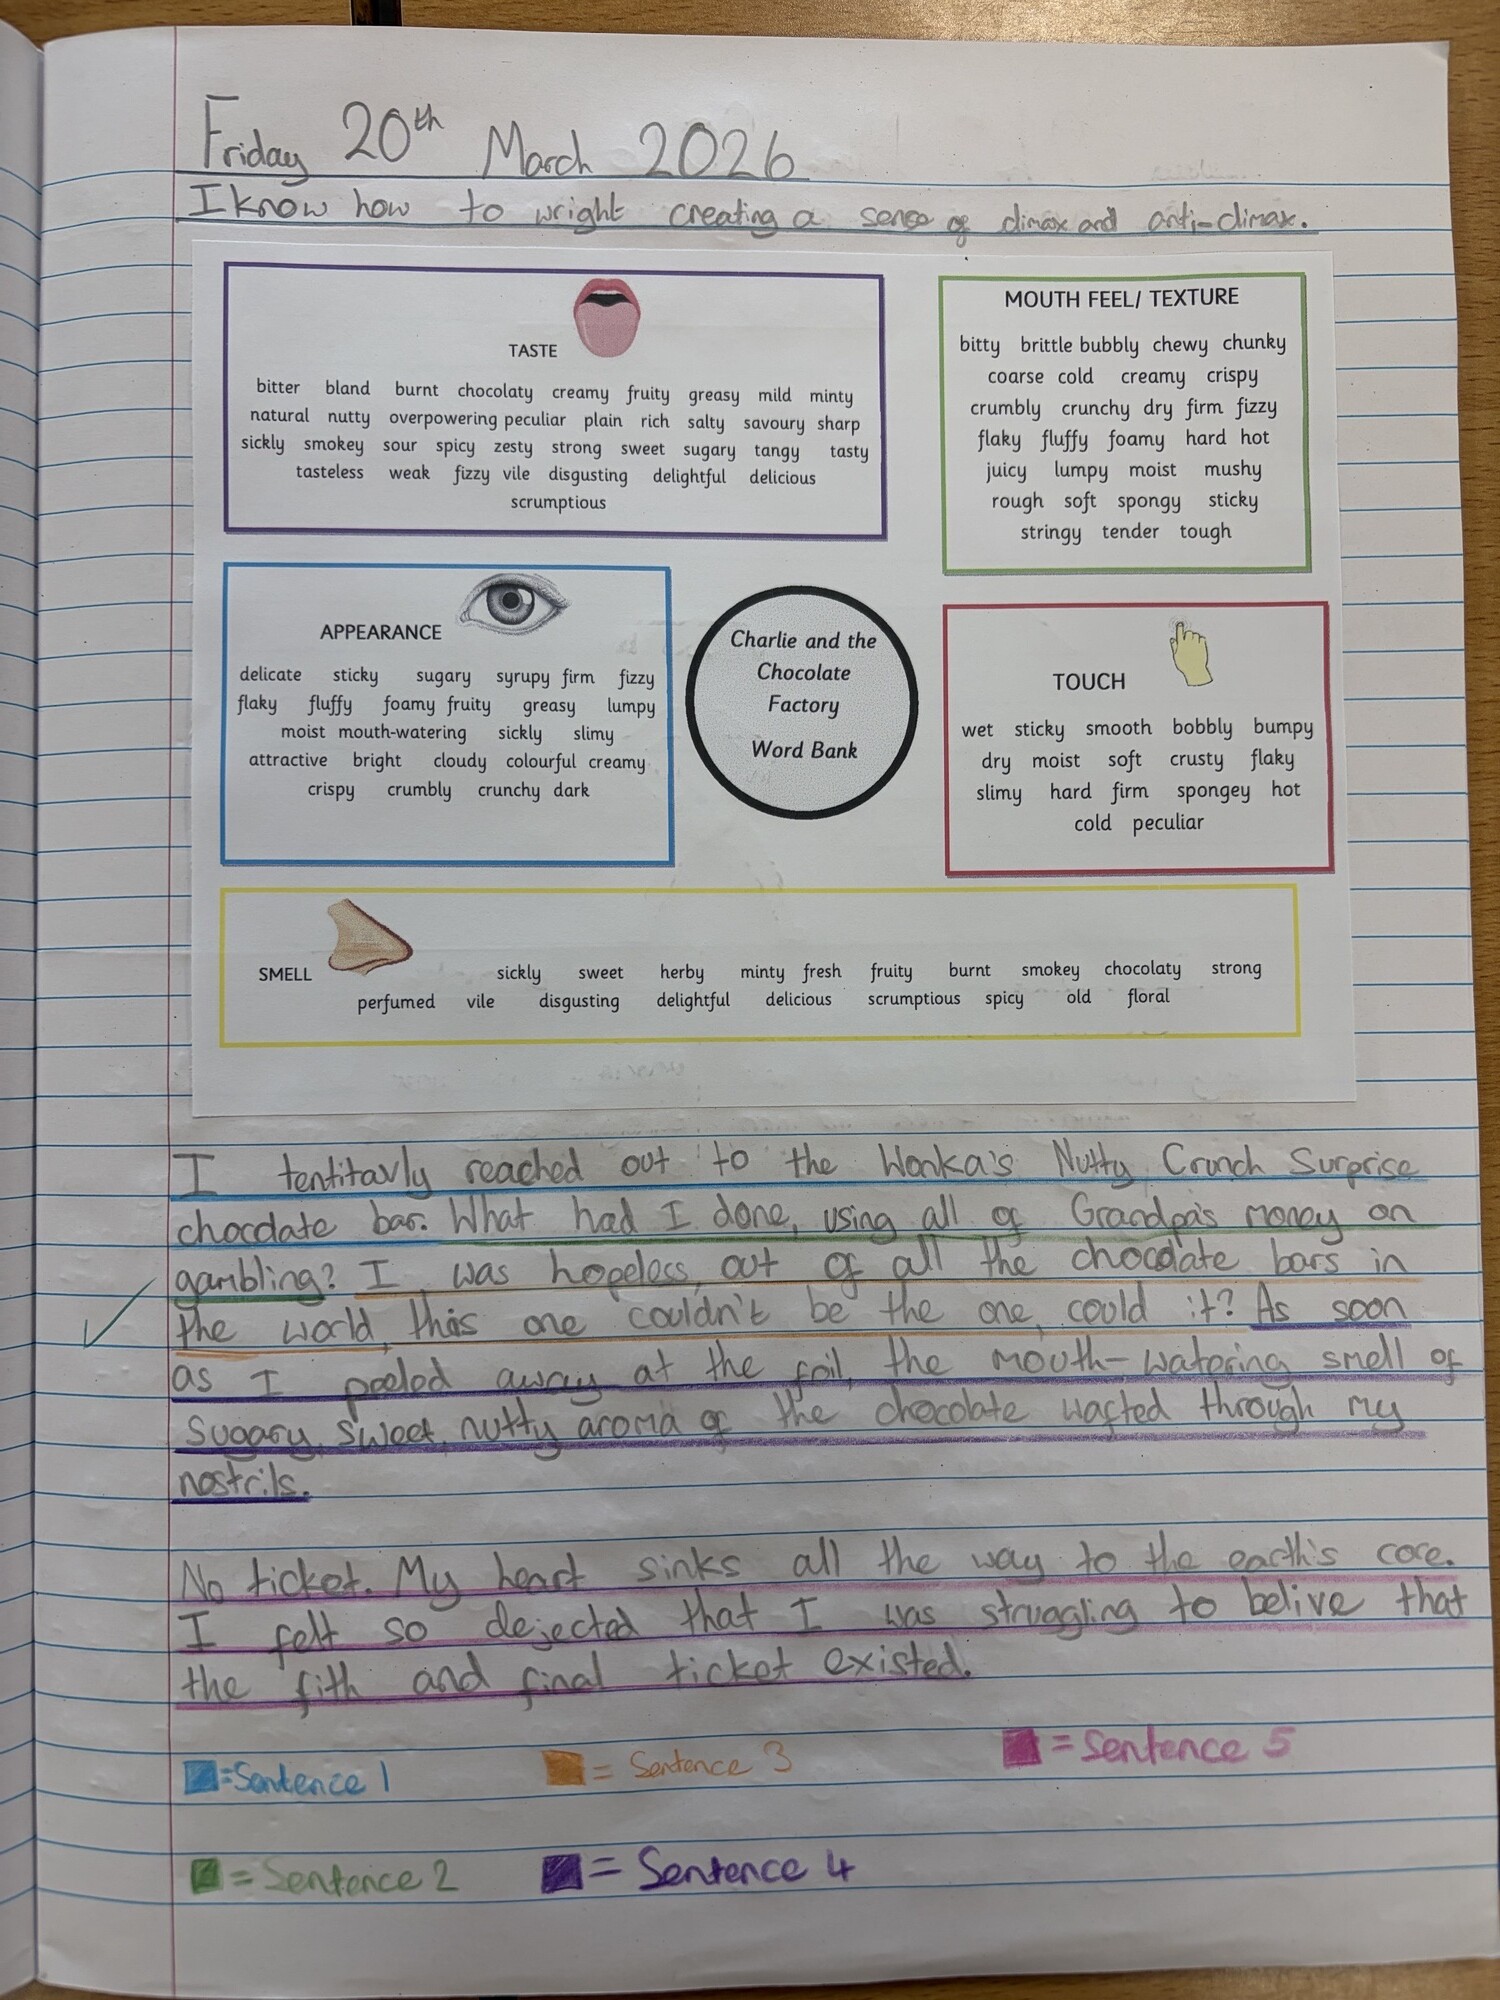 Friday 20th March 2026
I know how to wright creating a sense of climax and anti-climax.
TASTE
bitter bland burnt chocolaty creamy fruity greasy mild minty
natural nutty overpowering peculiar plain rich salty savoury sharp
sickly smokey sour spicy zesty strong sweet sugary tangy tasty
tasteless weak fizzy vile disgusting delightful delicious
scrumptious
MOUTH FEEL/ TEXTURE
bitty brittle bubbly chewy chunky
coarse cold creamy crispy
crumbly crunchy dry firm fizzy
flaky fluffy foamy hard hot
juicy lumpy moist mushy
rough soft spongy sticky
stringy tender tough
APPEARANCE
delicate sticky sugary syrupy firm fizzy
flaky fluffy foamy fruity greasy lumpy
moist mouth-watering sickly slimy
attractive bright cloudy colourful creamy
crispy crumbly crunchy dark
Charlie and the
Chocolate
Factory
Word Bank
TOUCH
wet sticky smooth bobbly bumpy
dry moist soft crusty flaky
slimy hard firm spongey hot
cold peculiar
SMELL
sickly sweet herby minty fresh fruity burnt smokey chocolaty strong
perfumed vile disgusting delightful delicious scrumptious spicy old floral
I tentitavly reached out to the Wonka's Nutty Crunch Surprise
chocolate bar. What had I done, using all of Grandpa's money on
gambling? I was hopeless, out of all the chocolate bars in
the world, this one couldn't be the one, could it? As soon
as I peeled away at the foil, the mouth-watering smell of
sugary, sweet, nutty aroma of the chocolate wafted through my
nostrils.
No ticket. My heart sinks all the way to the earth's core.
I felt so dejected that I was struggling to belive that
the fith and final ticket existed.
=Sentence 1
= Sentence 3
= Sentence 5
= Sentence 2
= Sentence 4